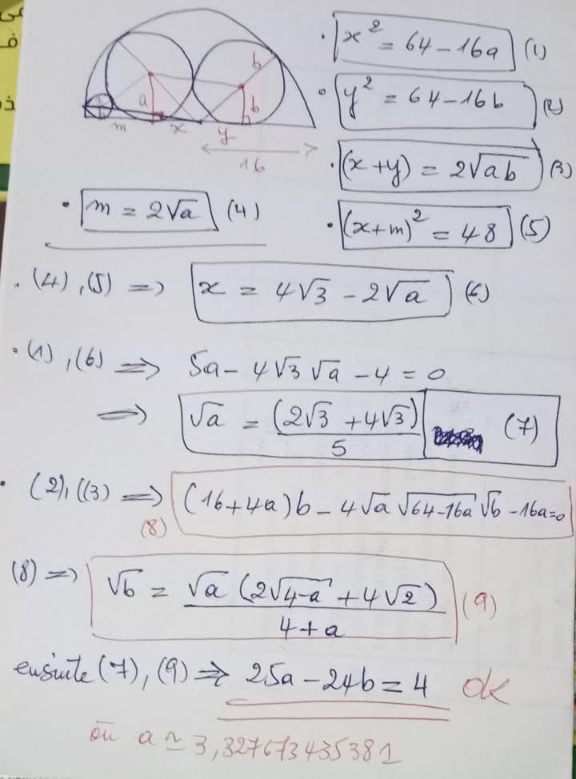 x² = 64 - 16a (1)
y² = 64 - 16b (2)
(x+y) = 2√ab (3)
b
a b
m x y
16
• m = 2√a (4)
• (x+m)² = 48 (5)
• (4), (5) => x = 4√3 - 2√a (6)
• (1), (6) => 5a - 4√3 √a - 4 = 0
=> √a = (2√3 + 4√3) / 5 (7)
• (2), (3) => (16+4a)b - 4√a √64-16a √b - 16a=0
(8)
(8) => √b = √a (2√4-a + 4√2) / 4+a (9)
ensuite (7), (9) => 25a - 24b = 4 ok
où a ≃ 3,327673435381